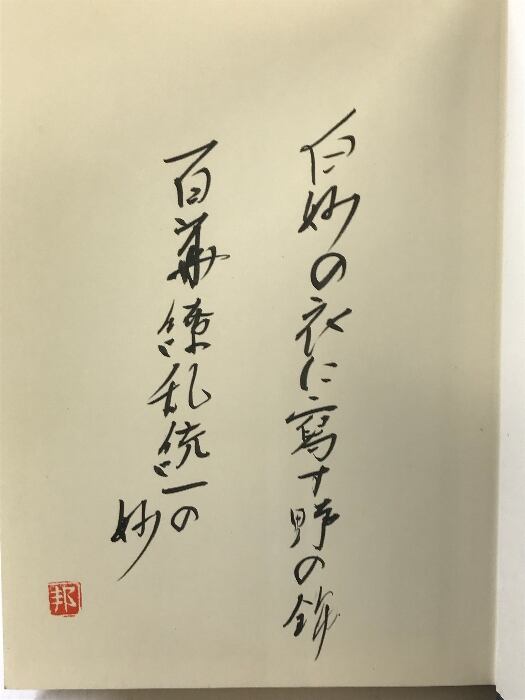 白妙の衣に寫す野の錦
百華繚乱統一の
妙
邦